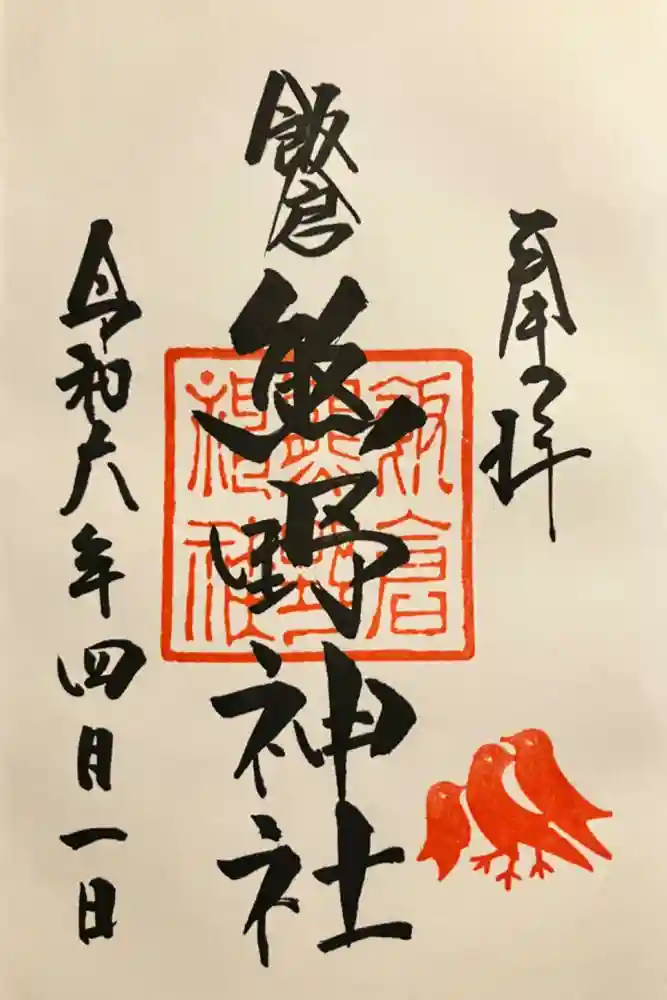 奉拝
飯倉
熊野神社
飯倉
熊野
神社
令和六年四月一日